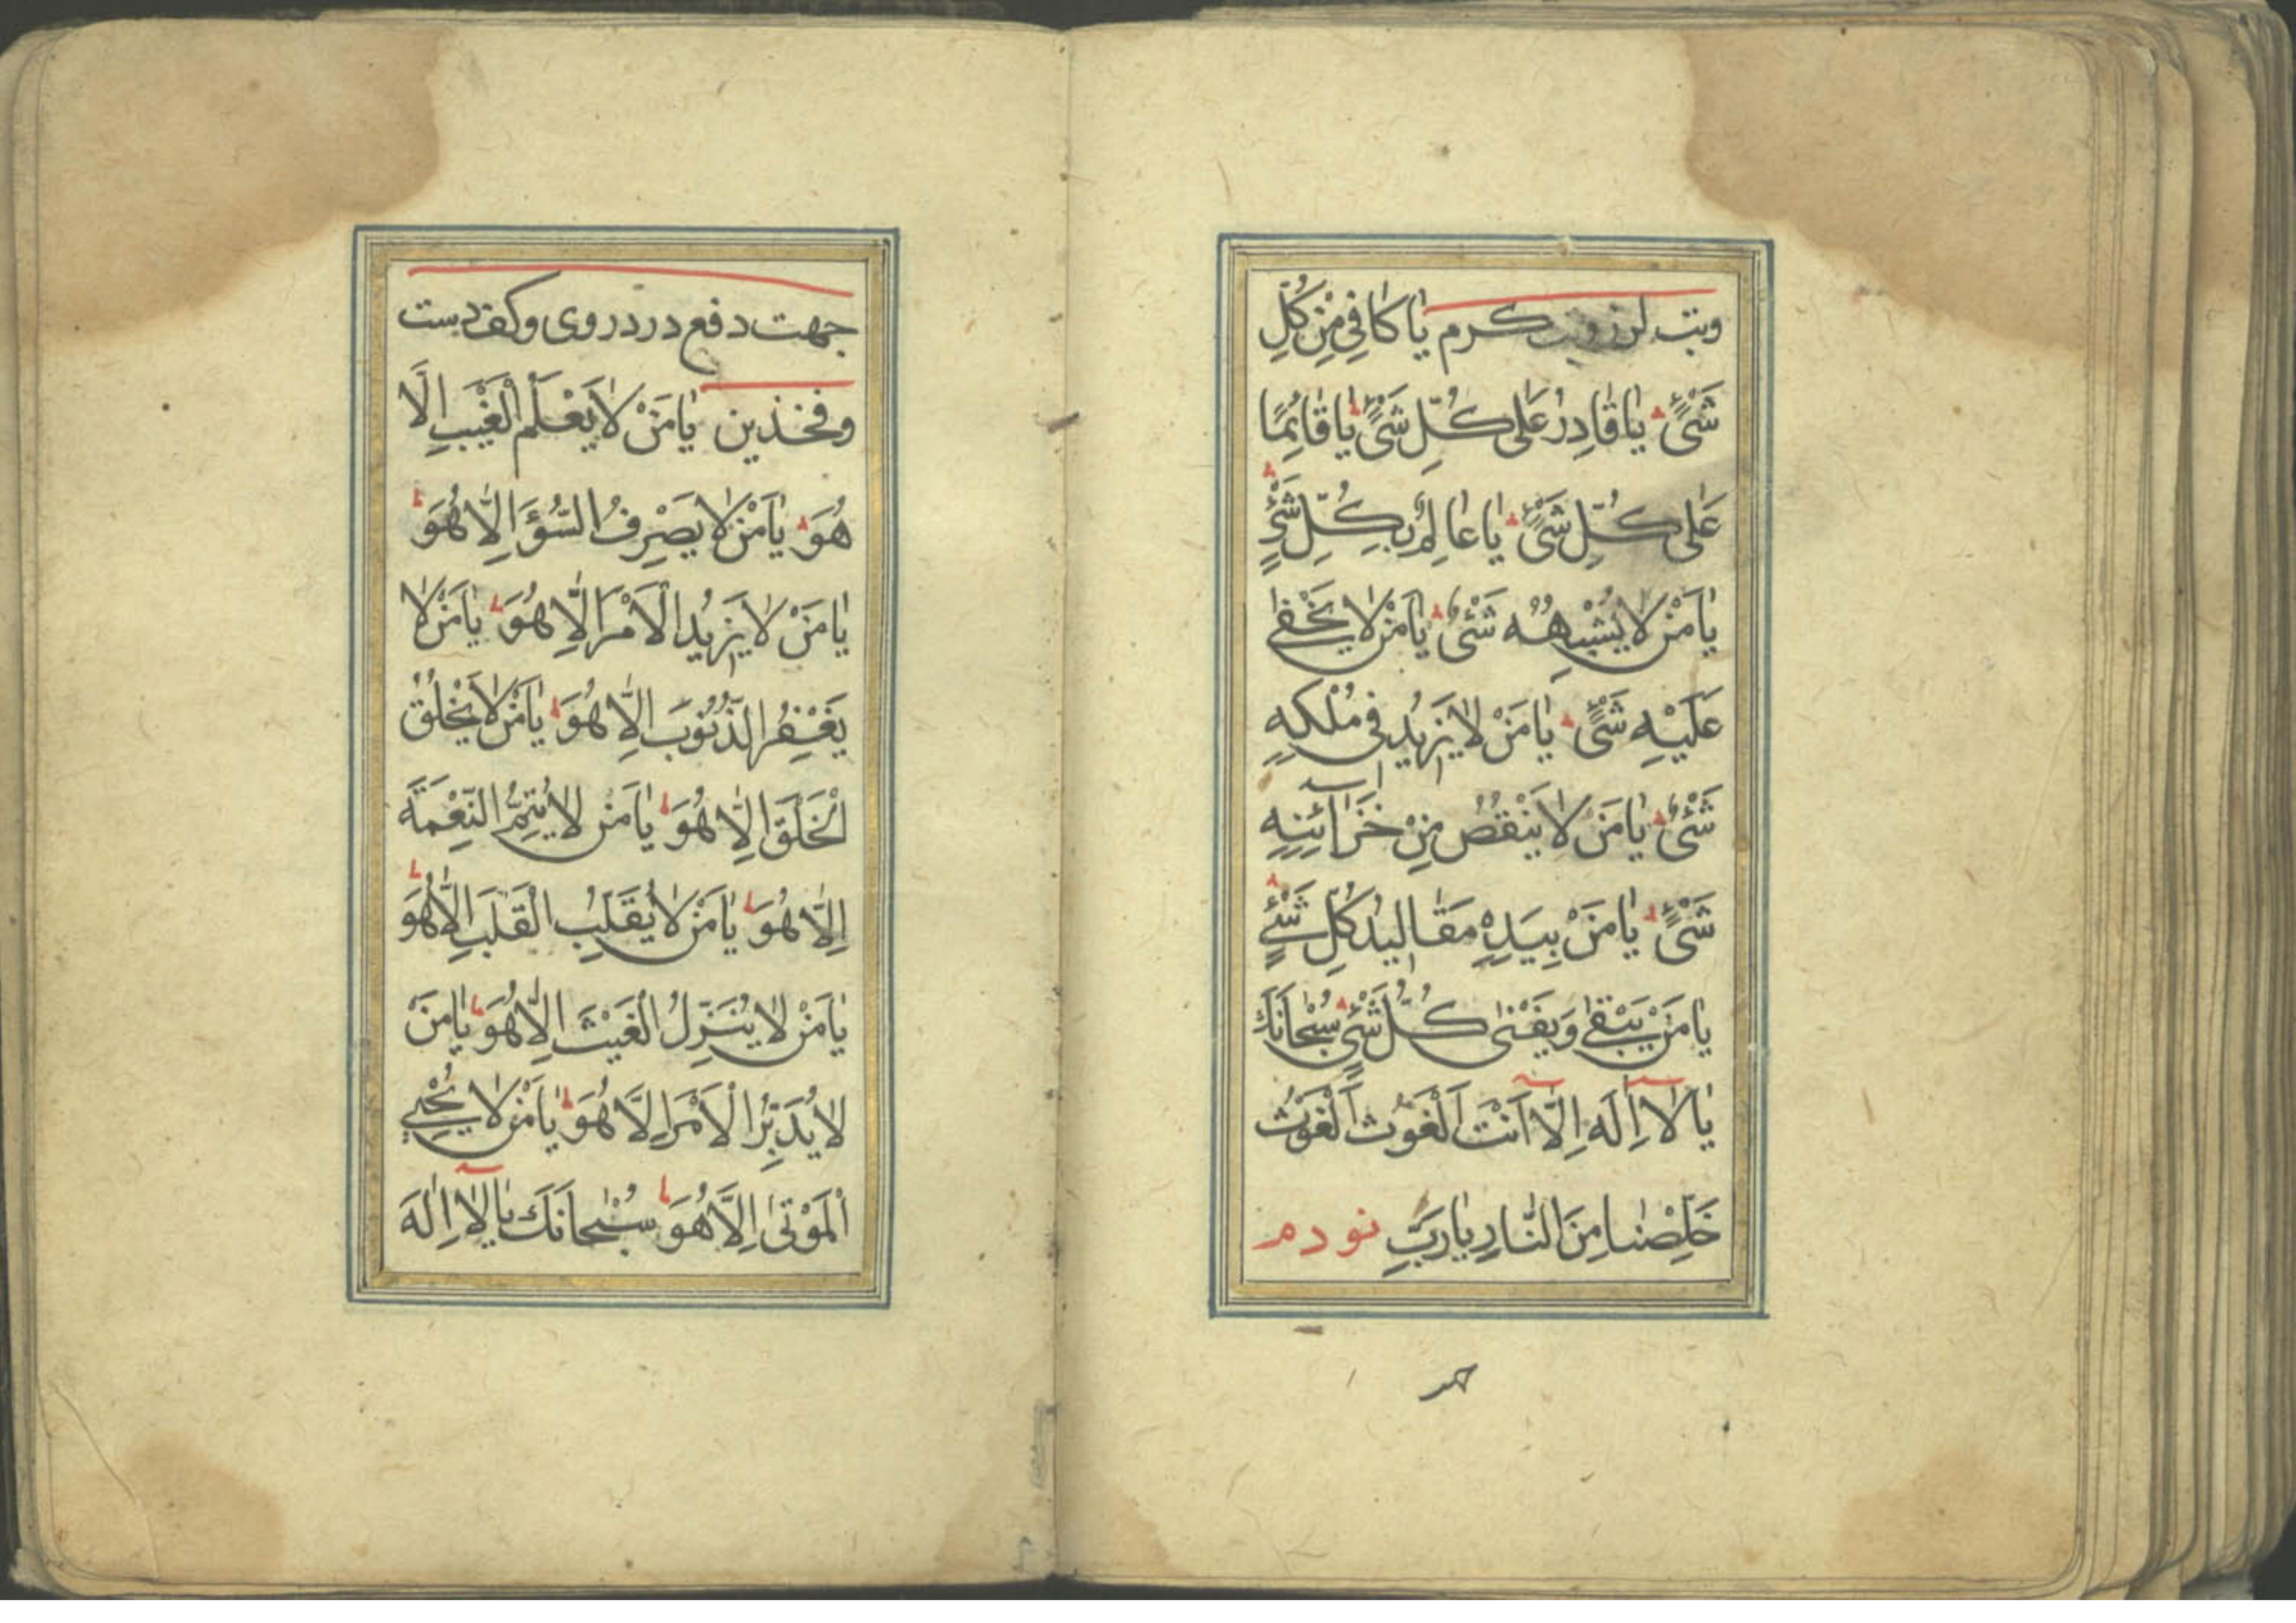 وبت لرز كرم يا كافِي مِنْ كُلِّ
شَىْءٍ يٰا قٰادِرُ عَلٰى كُلِّ شَىْءٍ يٰا قٰائِمًا
عَلٰى كُلِّ شَىْءٍ يٰا عٰالِمُ بِكُلِّ شَىْءٍ
يٰا مَنْ لٰا يُشْبِهُهُ شَىْءٌ يٰا مَنْ لٰا يَخْفٰى
عَلَيْهِ شَىْءٌ يٰا مَنْ لٰا يَزِيدُ فى مُلْكِهِ
شَىْءٌ يٰا مَنْ لٰا يَنْقُصُ مِنْ خَزٰآئِنِهِ
شَىْءٌ يٰا مَنْ بِيَدِهِ مَقٰاليدُ كُلِّ شَىْءٍ
يٰا مَنْ يَبْقٰى وَيَفْنٰى كُلُّ شَىْءٍ سُبْحٰانَكَ
يٰا لٰآ اِلٰهَ اِلّٰآ اَنْتَ اَلْغَوْثَ اَلْغَوْثَ
خَلِّصْنٰا مِنَ النّٰارِ يٰا رَبِّ نو دم
جهت دفع درد روى وكف دست
وفخذين يٰا مَنْ لٰا يَعْلَمُ الْغَيْبَ اِلَّا
هُوَ يٰا مَنْ لٰا يَصْرِفُ السُّوٓءَ اِلّٰا هُوَ
يٰا مَنْ لٰا يَزِيدُ الْاَمْرَ اِلّٰا هُوَ يٰا مَنْ لٰا
يَغْفِرُ الذُّنُوبَ اِلّٰا هُوَ يٰا مَنْ لٰا يَخْلُقُ
الْخَلْقَ اِلّٰا هُوَ يٰا مَنْ لٰا يُتِمُّ النِّعْمَةَ
اِلّٰا هُوَ يٰا مَنْ لٰا يُقَلِّبُ الْقَلْبَ اِلّٰا هُوَ
يٰا مَنْ لٰا يُنَزِّلُ الْغَيْثَ اِلّٰا هُوَ يٰا مَنْ
لٰا يُدَبِّرُ الْاَمْرَ اِلَّا هُوَ يٰا مَنْ لٰا يُحْيِي
الْمَوْتٰى اِلَّا هُوَ سُبْحٰانَكَ يٰا لٰآ اِلٰهَ